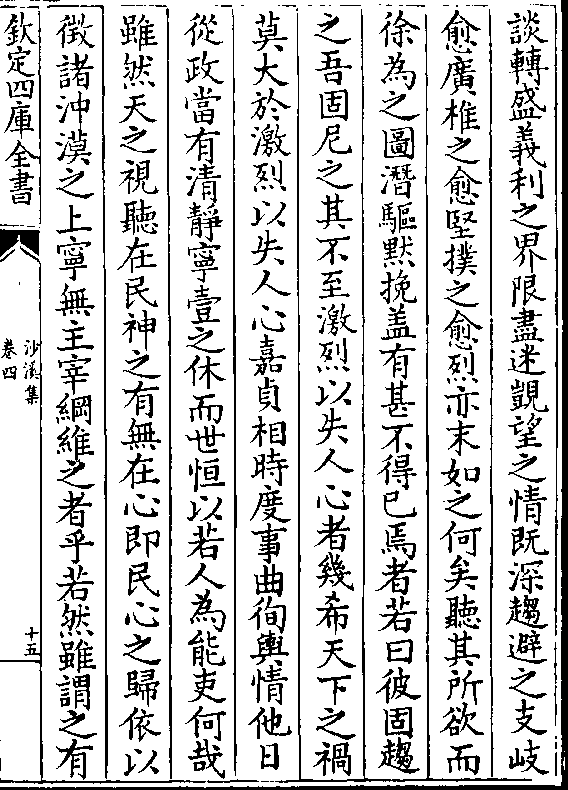 談轉盛義利之界限盡迷覬望之情既深趨避之支岐
愈廣椎之愈堅撲之愈烈亦末如之何矣聽其所欲而
徐為之圖潛驅默挽盖有甚不得已焉者若曰彼固趨
之吾固尼之其不至激烈以失人心者幾希天下之禍
莫大於激烈以失人心嘉貞相時度事曲徇輿情他日
從政當有清靜寧壹之休而世恒以若人為能吏何哉
雖然天之視聽在民神之有無在心即民心之歸依以
徴諸沖漠之上寧無主宰綱維之者乎若然雖謂之有
欽定四庫全書
沙溪集
卷四
十五